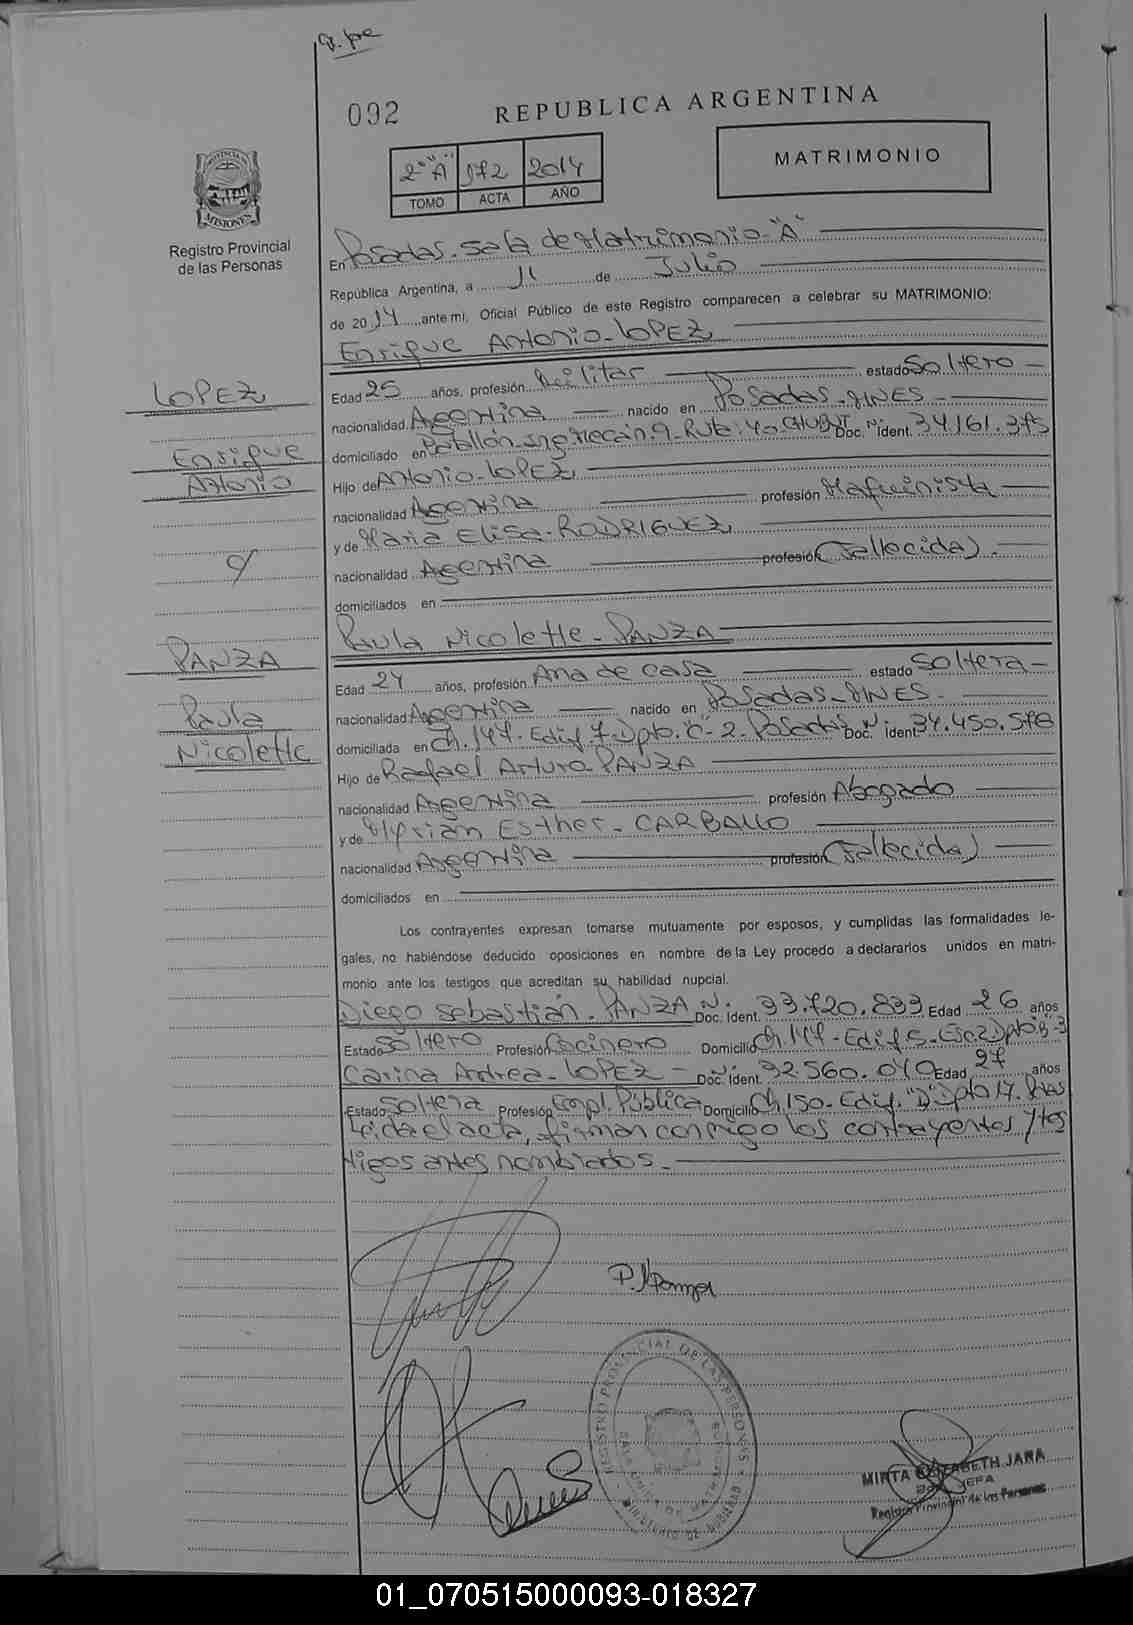 092
REPUBLICA ARGENTINA
2º "A" 572 2014
TOMO ACTA AÑO
MATRIMONIO
PROVINCIA
MISIONES
Registro Provincial
de las Personas
En Posadas - Sala de Matrimonio - "A"
República Argentina, a 11 de Julio
de 2014 ante mi, Oficial Público de este Registro comparecen a celebrar su MATRIMONIO:
Enrique Antonio - LOPEZ
LOPEZ
Enrique
Antonio
c/
Edad 25 años, profesión Militar estado Soltero
nacionalidad Argentina nacido en Posadas - MNES -
domiciliado en Batallón Ing Mecan. 9 - Ruta: 40 CHUBUT Doc. Nº ident. 34.161.375
Hijo de Antonio - LOPEZ
nacionalidad Argentina profesión Maquinista
y de Maria Elisa - RODRIGUEZ
nacionalidad Argentina profesión (Fallecida) -
domiciliados en
Paula Nicolette - PANZA
PANZA
Paula
Nicolette
Edad 24 años, profesión Ama de casa estado Soltera -
nacionalidad Argentina nacido en Posadas - MNES -
domiciliada en Ch. 147 - Edif 7 - Dpto. "C" - 2 - Posadas Doc. Nº Ident 34.450.578
Hijo de Rafael Arturo PANZA
nacionalidad Argentina profesión Abogado
y de Myrian Esther - CARBALLO
nacionalidad Argentina profesión (Fallecida)
domiciliados en
Los contrayentes expresan tomarse mutuamente por esposos, y cumplidas las formalidades le-
gales, no habiéndose deducido oposiciones en nombre de la Ley procedo a declararlos unidos en matri-
monio ante los testigos que acreditan su habilidad nupcial.
Diego Sebastián - PANZA Doc. Nº Ident. 33.720.833 Edad 26 años
Estado Soltero Profesión Cocinero Domicilio Ch. 147 - Edif 5 - Esc. 2 Dpto B - 3
Carina Andrea - LOPEZ - Doc. Nº Ident. 32560.040 Edad 27 años
Estado Soltera Profesión Empl. Pública Domicilio Ch 150 - Edif. "D" Dpto 17. Pdas
Leida el acta, firman conmigo los contrayentes y tes
tigos antes nombrados. -
P. N Panza
REGISTRO PROVINCIAL DE LAS PERSONAS
MINISTERIO DE GOBIERNO
MIRTA ELIZABETH JARA
JEFA
Registro Provincial de las Personas
01_070515000093-018327